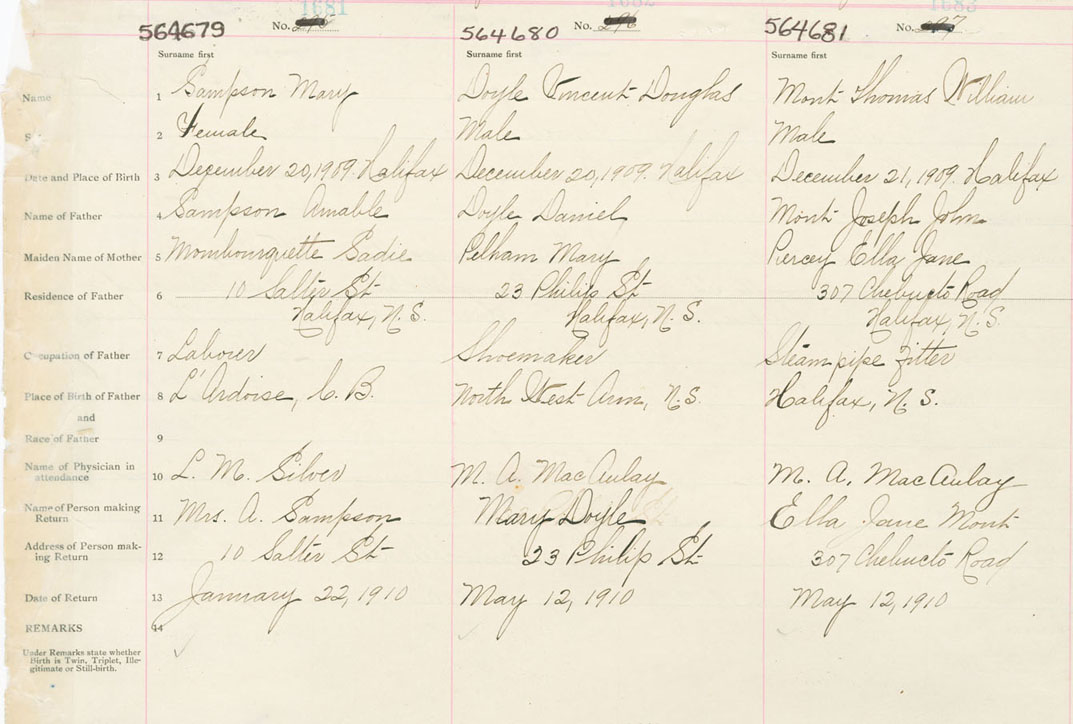 1681 1682 1683
564679 No. 564680 No. 296 564681 No.
Surname first Surname first Surname first
Name 1 Sampson Mary Doyle Vincent Douglas Mont Thomas William
2 Female Male Male
Date and Place of Birth 3 December 20, 1909. Halifax December 20, 1909. Halifax December 21, 1909. Halifax
Name of Father 4 Sampson Amable Doyle Daniel Mont Joseph John
Maiden Name of Mother 5 Mombourquette Sadie Pelham Mary Percey Ella Jane
Residence of Father 6 10 Salter St 23 Philip St 307 Chebucto Road
Halifax, N.S. Halifax, N.S. Halifax, N.S.
Occupation of Father 7 Laborer Shoemaker Steam pipe Fitter
Place of Birth of Father 8 L'Ardoise, C.B. North West Arm, N.S. Halifax, N.S.
and
Race of Father 9
Name of Physician in
attendance 10 L. M. Silver M. A. MacAulay M. A. MacAulay
Name of Person making
Return 11 Mrs. A. Sampson Mary Doyle Ella Jane Mont
Address of Person mak-
ing Return 12 10 Salter St 23 Philip St 307 Chebucto Road
Date of Return 13 January 22, 1910 May 12, 1910 May 12, 1910
REMARKS 14
Under Remarks state whether
Birth is Twin, Triplet, Ille-
gitimate or Still-birth.